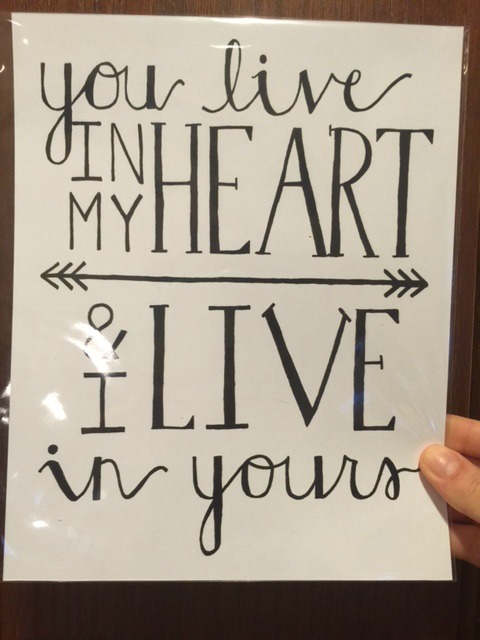 you live
IN MY HEART
& I LIVE
in yours